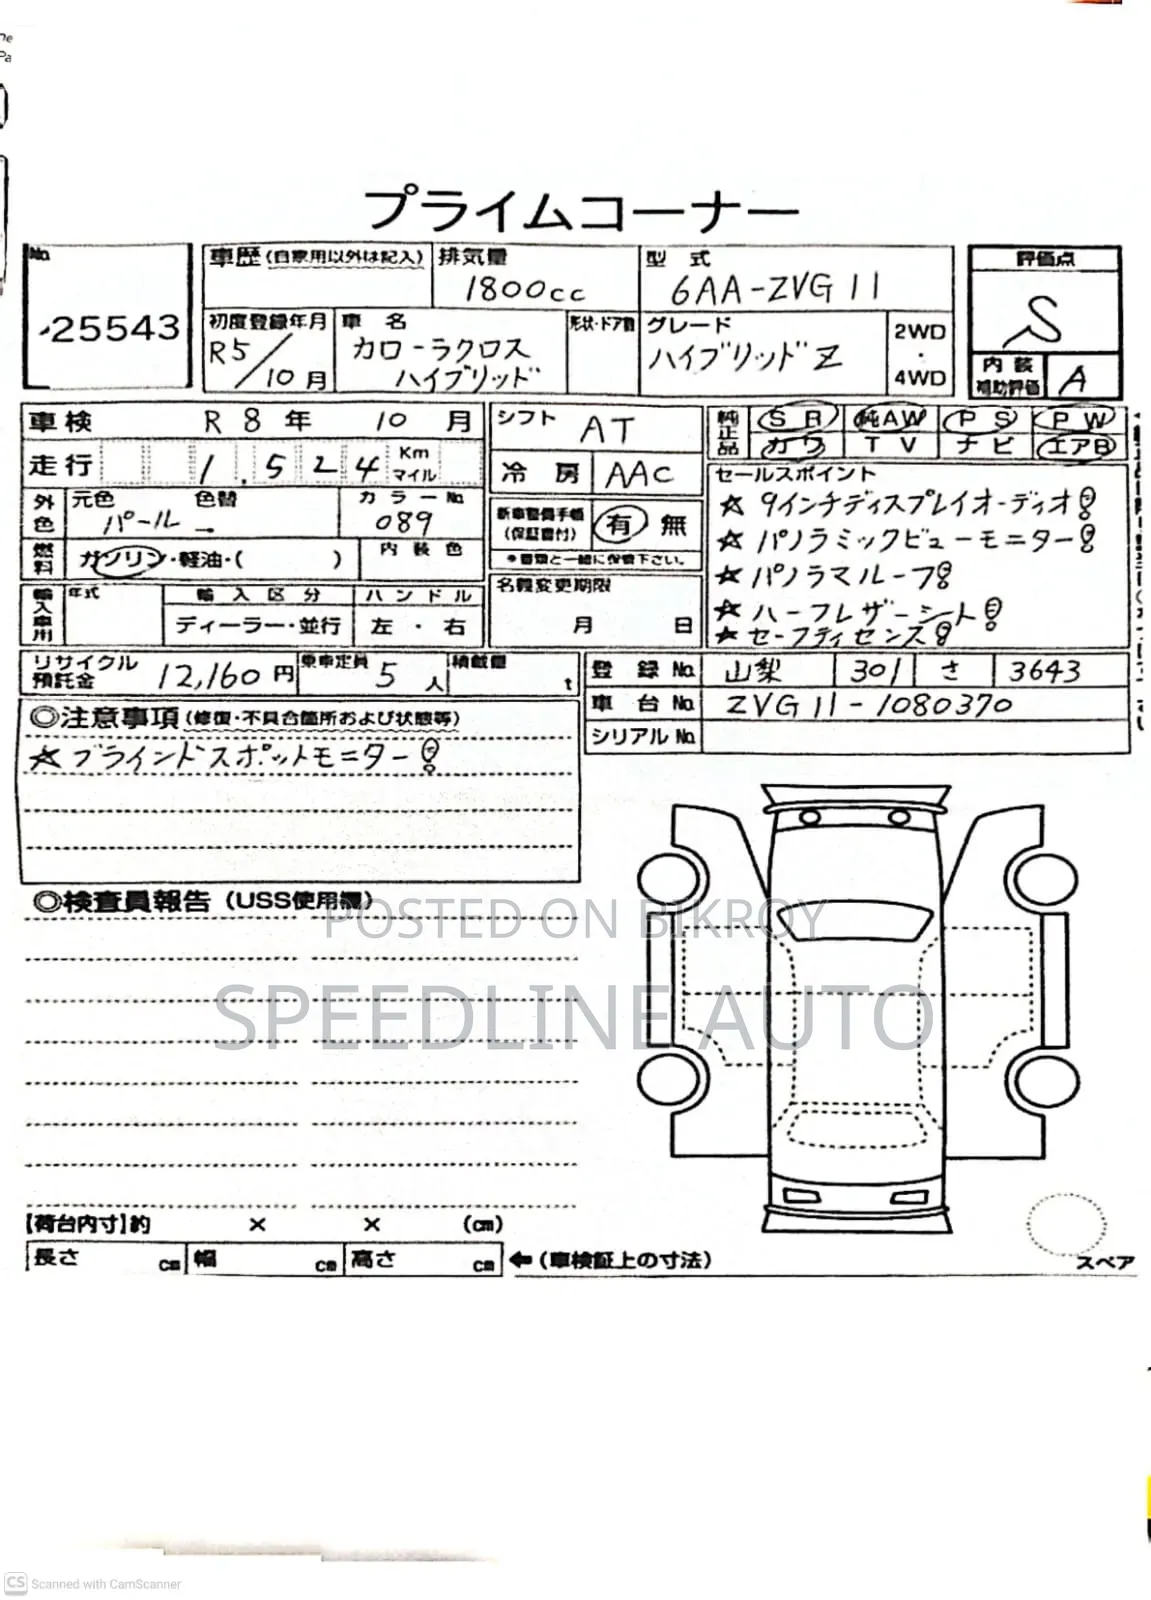 プライムコーナー
No.
25543
車歴(自家用以外は記入)
排気量
1800cc
型 式
6AA-ZVG11
評価点
S
初度登録年月
R5/10月
車 名
カローラクロス
ハイブリッド
形状・ドア数
グレード
ハイブリッドZ
2WD
・
4WD
内装
補助評価
A
車検 R8年 10月
走行 1,524 Km マイル
外色 元色 パール 色替 カラーNo. 089
燃料 ガソリン・軽油・( ) 内装色
輸入車用 年式 輸入区分 ハンドル
ディーラー・並行 左・右
シフト AT
冷房 AAC
新車整備手帳
(保証書付)
有 無
*書類と一緒に保管下さい。
名義変更期限
月 日
純正品 SR 純AW PS PW
カワ TV ナビ エアB
セールスポイント
☆ 9インチディスプレイオーディオ!
☆ パノラミックビューモニター!
☆ パノラマルーフ!
☆ ハーフレザーシート!
☆ セーフティセンス!
リサイクル
預託金
12,160円
乗車定員 5人
積載量 t
登録No. 山梨 301 さ 3643
車台No. ZVG11-1080370
シリアルNo.
◎注意事項(修復・不具合箇所および状態等)
☆ ブラインドスポットモニター!
◎検査員報告(USS使用欄)
POSTED ON BIKROY
SPEEDLINE AUTO
【荷台内寸】約 × × (cm)
長さ cm 幅 cm 高さ cm ←(車検証上の寸法)
スペア
CS Scanned with CamScanner